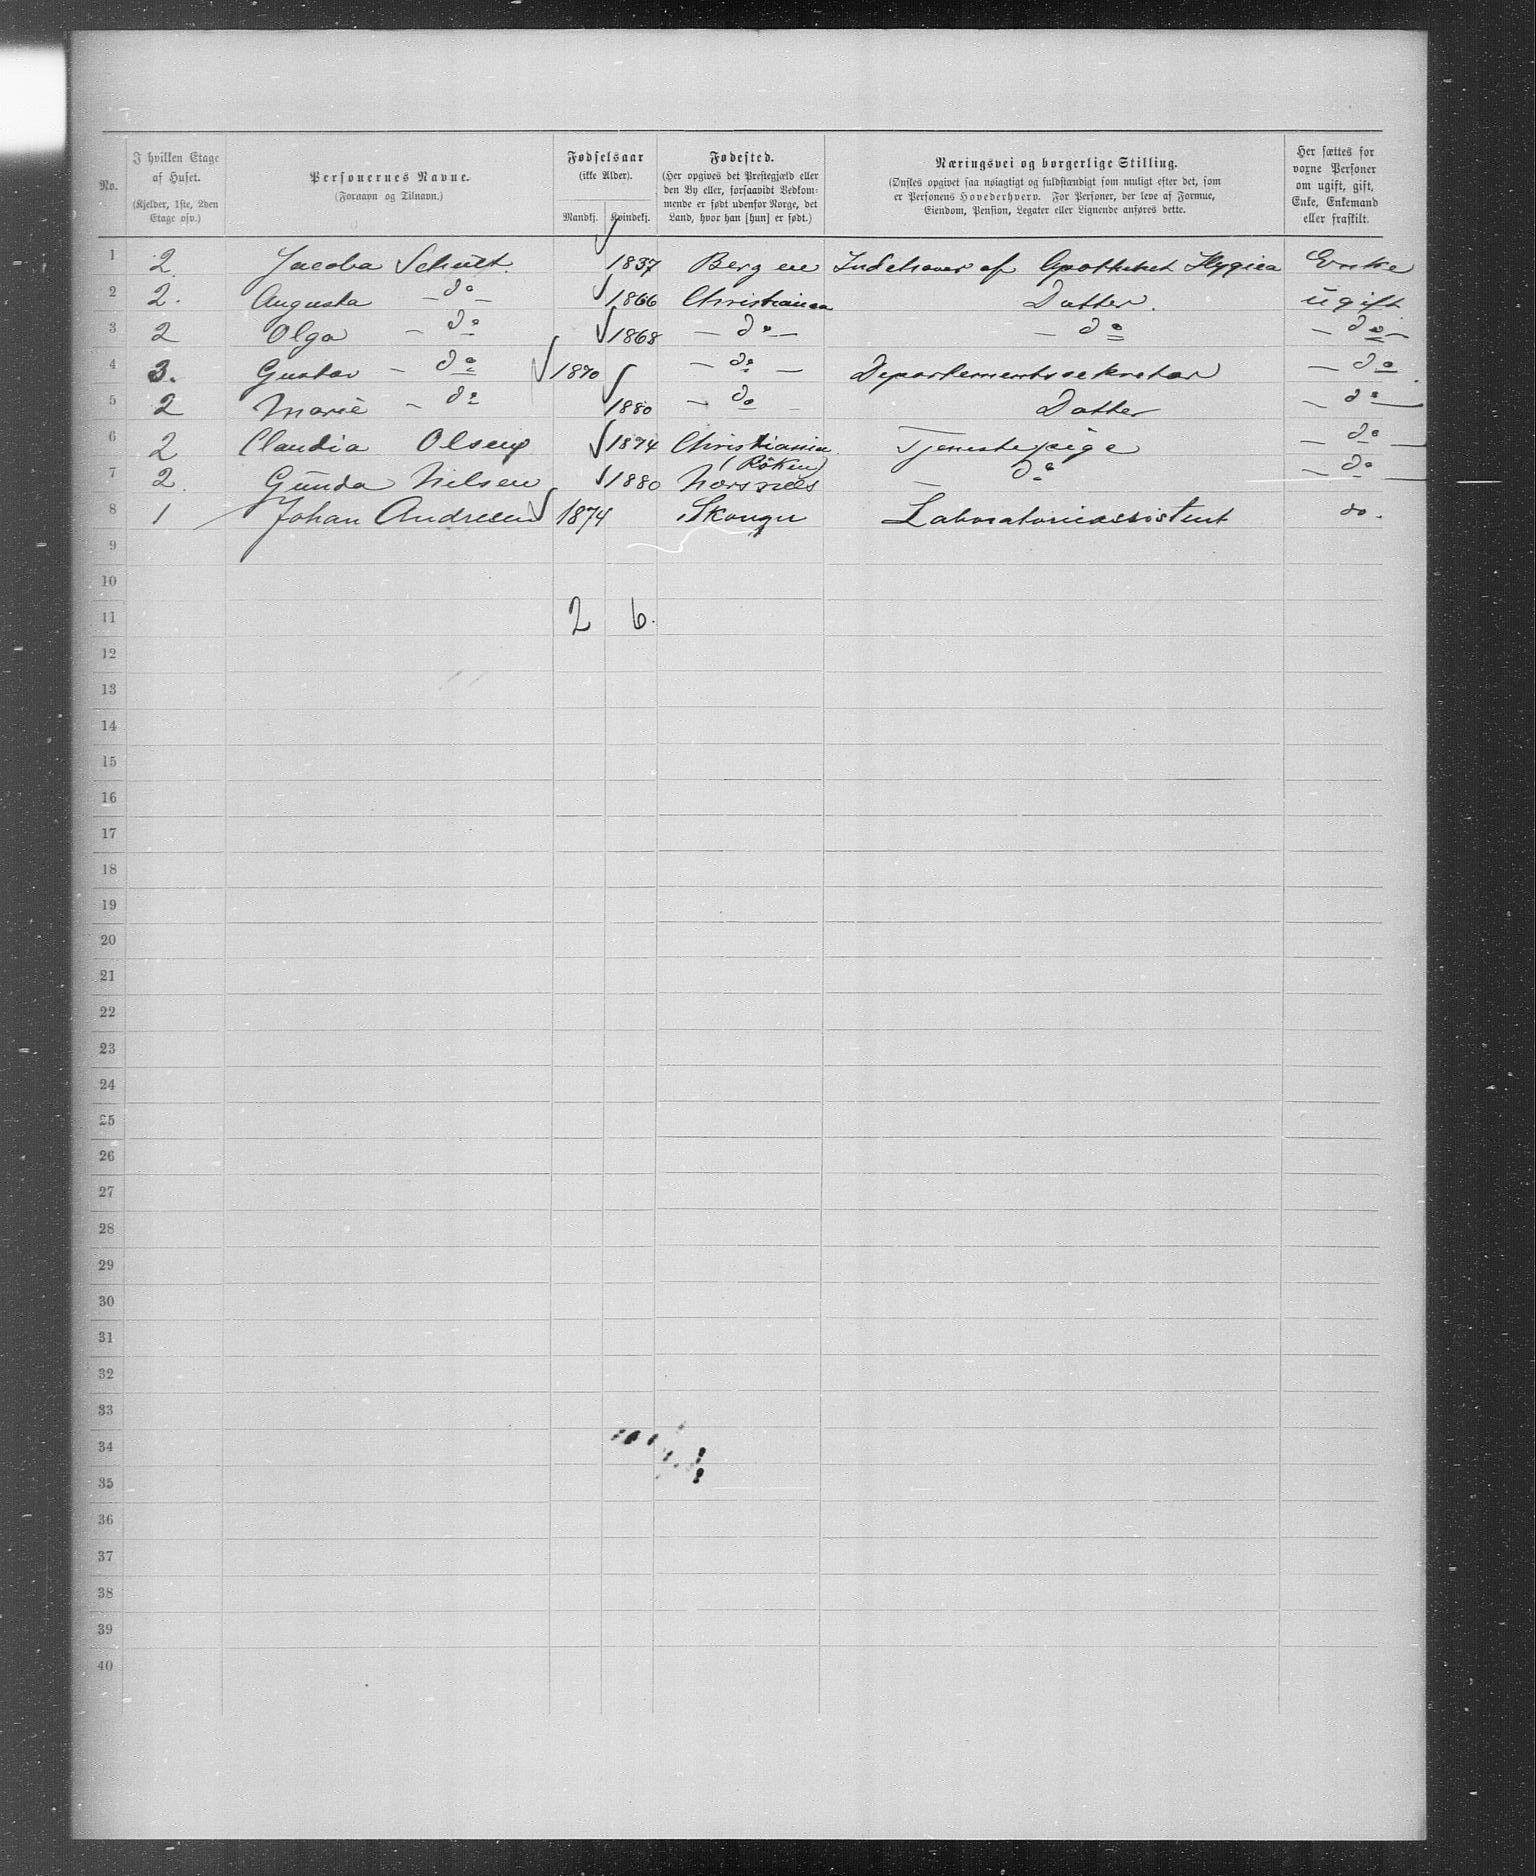 No.
I hvilken Etage af Huset. (Kjelder, 1ste, 2den Etage osv.)
Personernes Navne. (Fornavn og Tilnavn.)
Fødselsaar (ikke Alder). Mandkj. Kvindekj.
Fødested. (Her opgives det Prestegjæld eller den By eller, forsaavidt Vedkommende er født udenfor Norge, det Land, hvor han [hun] er født.)
Næringsvei og borgerlige Stilling. (Ønskes opgivet saa nøiagtigt og fuldstændigt som muligt efter det, som er Personens Hovederhverv. For Personer, der leve af Formue, Eiendom, Pension, Legater eller Lignende anføres dette.
Her sættes for voxne Personer om ugift, gift, Enke, Enkemand eller fraskilt.
1 2 Jacoba Schult. 1837 Bergen Indehaver af Apotheket Hygiea Enke
2 2. Augusta — do — 1866 Christiania Datter. ugift.
3 2 Olga — do 1868 — do — — do — do —
4 3. Gustav — do 1870 — do — Departementssekretær — do
5 2 Marie — do 1880 — do — Datter — do —
6 2 Claudia Olsen 1874 Christiania Tjenestepige — do —
7 2. Gunda Nilsen 1880 (Röken) Nærsnæs — do — do —
8 1 Johan Andresen 1874 Skouger Laboratorieassistent do.
9
10
11 2 6.
12
13
14
15
16
17
18
19
20
21
22
23
24
25
26
27
28
29
30
31
32
33
34
35
36
37
38
39
40